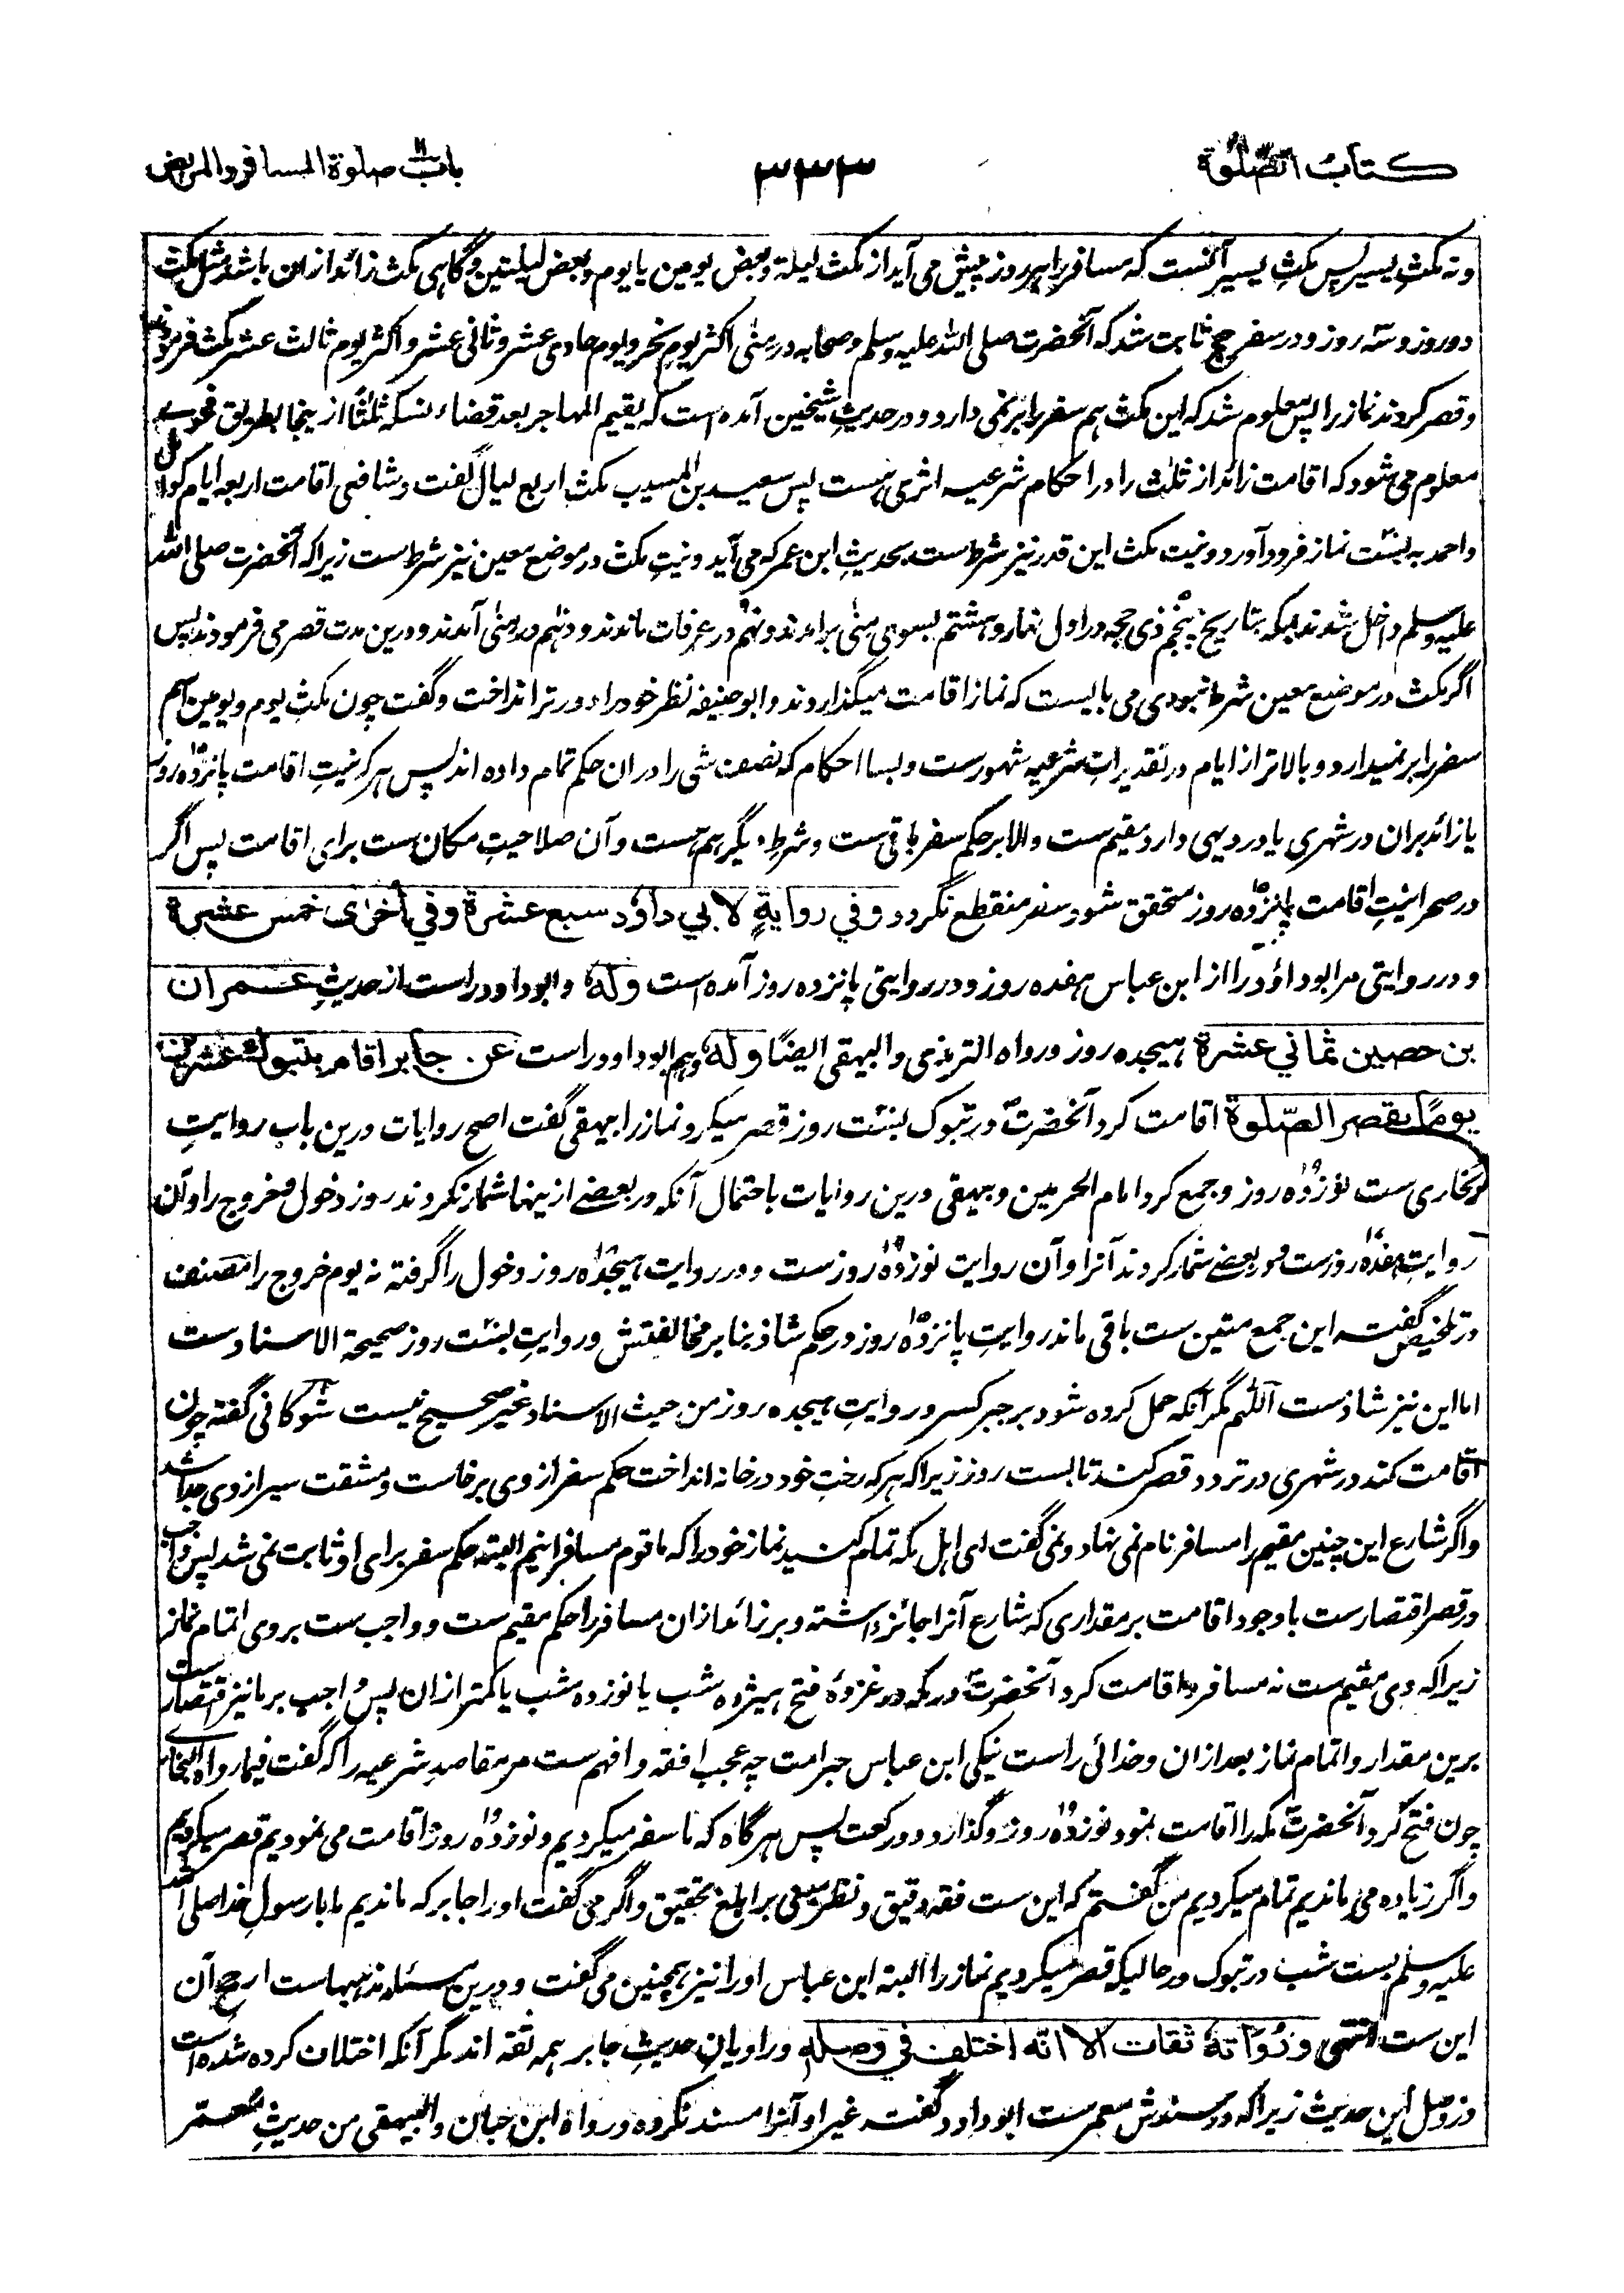 كتاب الصلوة
۳۳۳
باب صلوة المسافر والمريض
ونه مكث يسير پس مكث يسير آنست كه مسافر را هر روز پيش مى آيد از مكث ليلة وبعض يومين يا يوم وبعض ليلتين وگاهى مكث زائد ازان باشد مثل مكث
دو روز وسه روز ودر سفر حج ثابت شد كه آنحضرت صلى الله عليه وسلم وصحابه در منى اكثر يوم نحر ويوم حادى عشر وثانى عشر واكثر يوم ثالث عشر مكث فرمودند
وقصر كردند نماز را پس معلوم شد كه اين مكث هم سفر را بر نمى دارد ودر حديث شيخين آمده است كه يقيم المهاجر بعد قضاء نسكه ثلثا از ينجا بطريق فحوى
معلوم مى شود كه اقامت زائد از ثلث را در احكام شرعيه اثرى هست پس سعيد بن المسيب مكث اربع ليال گفت وشافعى اقامت اربعه ايام كوامل
واحمد به بست نماز فرود آورد ونيت مكث اين قدر نيز شرط ست بحديث ابن عمر كه مى آيد ونيت مكث در موضع معين نيز شرط ست زيرا كه آنحضرت صلى الله
عليه وسلم داخل شدند بمكه بتاريخ پنجم ذى حجه در اول نهار وهشتم بسوى منى برامدند ونهم در عرفات ماندند ودهم در منى آمدند ودرين مدت قصر مى فرمودند پس
اگر مكث در موضع معين شرط نبودى مى بايست كه نماز اقامت ميگذاردند وابو حنيفه نظر خود را دورتر انداخت وگفت چون مكث يوم ويومين هم
سفر را بر نميدارد وبالاتر از ايام در تقديرات شرعيه شهور ست وبسا احكام كه نصف شى را دران حكم تمام داده اند پس هر كه نيت اقامت پانزده روز
يا زائد بران در شهرى يا در ديهى دارد مقيم ست والا بر حكم سفر باقى ست وشرط ديگر هم هست وآن صلاحيت مكان ست براى اقامت پس اگر
در صحرا نيت اقامت پانزده روز متحقق شود سفر منقطع نگردد وفي رواية لابي داؤد سبع عشرة وفي أخرى خمس عشرة
ودر روايتى مر ابو داؤد را از ابن عباس هفده روز ودر روايتى پانزده روز آمده است وله وابو داود راست از حديث عمران
بن حصين ثماني عشرة هيجده روز ورواه الترمذى والبيهقى ايضا وله وهم ابو داود راست عن جابر اقام بتبوك عشرين
يوما يقصر الصلوة اقامت كرد آنحضرت در تبوك بست روز قصر ميكرد نماز را بيهقى گفت اصح روايات درين باب روايت
بخارى ست نوزده روز وجمع كرد امام الحرمين وبيهقى درين روايات باحتمال آنكه در بعضے از ينها شمار نكردند روز دخول وخروج را وآن
روايت هفده روز ست ودر بعضے شمار كردند آنرا وآن روايت نوزده روز ست ودر روايت هيجده روز دخول را گرفته نه يوم خروج را مصنف
در تلخيص گفته اين جمع متين ست باقى ماند روايت پانزده روز در حكم شاذ بنابر مخالفتش وروايت بست روز صحيحة الاسناد ست
اما اين نيز شاذ ست اللهم مگر آنكه حمل كرده شود بر جبر كسر وروايت هيجده روز من حيث الاسناد غير صحيح نيست شوكانى گفته چون
اقامت كند در شهرى در تردد قصر كند تا بست روز زيرا كه هر كه رخت خود در خانه انداخت حكم سفر از وى برخاست ومشقت سير از وى جدا شد
واگر شارع اين چنين مقيم را مسافر نام نمى نهاد ونمى گفت اى اهل مكه تمام كنيد نماز خود را كه ما قوم مسافرانيم البته حكم سفر براى او ثابت نمى شد پس واجب
در قصر اقتصار ست با وجود اقامت بر مقدارى كه شارع آنرا جائز داشته وبر زائد ازان مسافر را حكم مقيم ست وواجب ست بر وى اتمام نماز
زيرا كه وى مقيم ست نه مسافر واقامت كرد آنحضرت در مكه در غزوۀ فتح هيژده شب يا نوزده شب يا كمتر ازان پس واجب بر ما نيز اقتصار ست
برين مقدار واتمام نماز بعد ازان وخدائى راست نيكى ابن عباس حبر امت چه عجب افقه وافهم ست مر مقاصد شرعيه را كه گفت فيما رواه البخارى
چون فتح كرد آنحضرت مكه را اقامت نمود نوزده روز وگذارد دو ركعت پس هرگاه كه ما سفر ميكرديم ونوزده روز اقامت مى نموديم قصر ميكرديم
واگر زياده مى مانديم تمام ميكرديم من گفتم كه اين ست فقه دقيق ونظر مبنى بر ابلغ تحقيق واگر مى گفت او را جابر كه مانديم ما با رسول خدا صلى الله
عليه وسلم بست شب در تبوك در حاليكه قصر ميكرديم نماز را البته ابن عباس او را نيز همچنين مى گفت ودرين مسئله مذهبهاست ارجح آن
اين ست انتهى ورواته ثقات الا انه اختلف في وصله وراويان حديث جابر همه ثقه اند مگر آنكه اختلاف كرده شده است
در وصل اين حديث زيرا كه در سندش معمر ست ابو داود گفته غير او آنرا مسند نكرده ورواه ابن حبان والبيهقى من حديث معمر